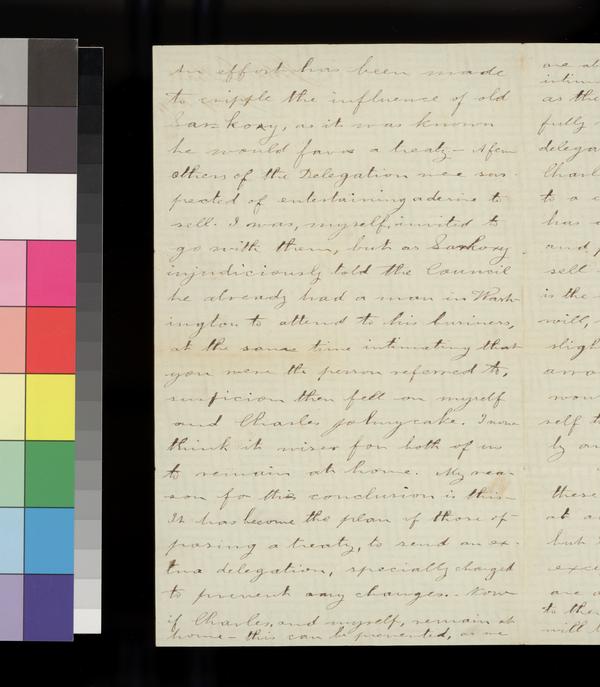 An effort has been made
to cripple the influence of old
Sar-koxy, as it was known
he would favor a treaty - A few
others of the Delegation were sus-
pected of entertaining a desire to
sell. I was, myself, invited to
go with them, but as Sarkoxy
injudiciously told the Council
he already had a man in Wash-
ington to attend to his business,
at the same time intimating that
you were the person referred to,
suspicion then fell on myself
and Charles Johnycake. I now
think it wiser for both of us
to remain at home. My rea-
son for this conclusion is this-
It has become the plan of those op-
posing a treaty, to send an ex-
tra delegation, specially charged
to prevent any changes. Now
if Charles, and myself, remain at
home - this can be prevented, as we
are
as the
fully
delega
Charl
to a
has
and
sell
is the
will,
sligh
self
by
these
at
but
exce
are
to the
will